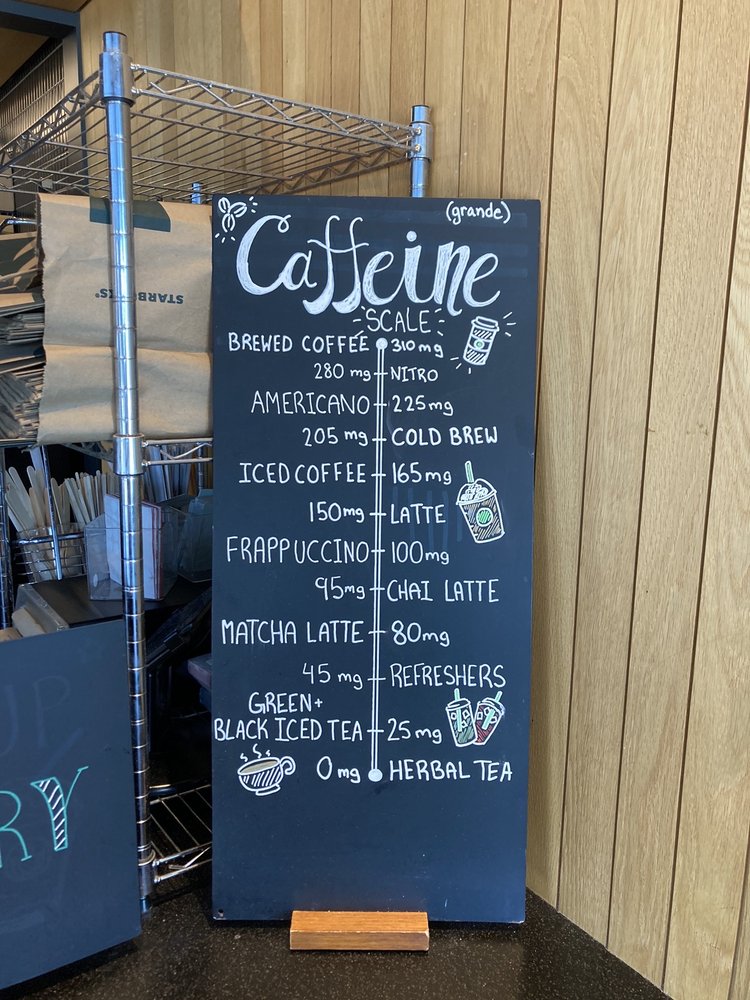 (grande)
Caffeine
SCALE
BREWED COFFEE 310mg
280 mg NITRO
AMERICANO 225mg
205 mg COLD BREW
ICED COFFEE 165mg
150mg LATTE
FRAPPUCCINO 100mg
95mg CHAI LATTE
MATCHA LATTE 80mg
45 mg REFRESHERS
GREEN+
BLACK ICED TEA 25mg
0mg HERBAL TEA
STARBUCKS®
UP
RY